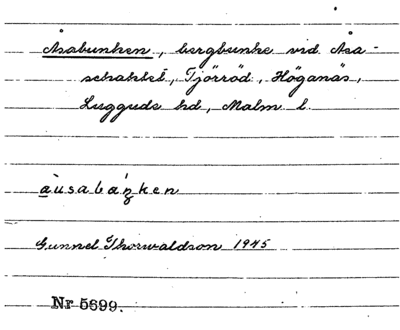 Åsabunken, bergbunke vid Åsa-
schaktet, Tjörröd, Höganäs,
Luggude hd, Malm l.
àusabáŋken
Gunnel Thorwaldson 1945
Nr 5699.